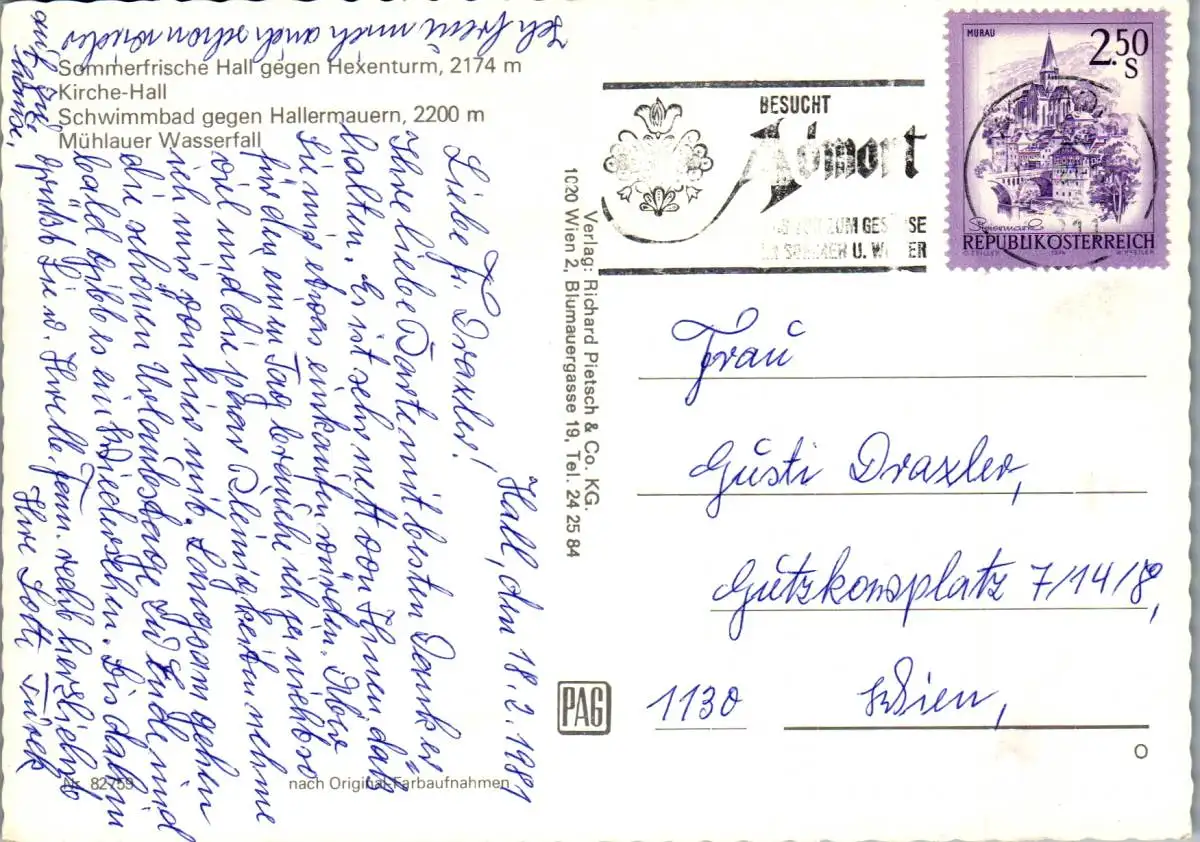 Sommerfrische Hall gegen Hexenturm, 2174 m
Kirche-Hall
Schwimmbad gegen Hallermauern, 2200 m
Mühlauer Wasserfall
Hall, den 18.2.1981
Liebe Fr. Draxler!
Ihre liebe Karte mit besten Dank er=
halten. Es ist sehr nett von Ihnen, daß
Sie mir etwas einkaufen würden. Aber
für den einen Tag brauche ich ja nicht so
viel und die paar Kleinigkeiten nehme
ich mir von hier mit. Langsam gehen
die schönen Urlaubstage zu Ende und
bald gibt es ein Wiedersehen. Bis dahin
grüßt Sie u. Ihre lb. Fam. recht herzlichst
Ihre Lotte Türek
Ich freue mich auch schon wieder
auf zu
Hause,
Nr. 82759
nach Original-Farbaufnahmen
Verlag: Richard Pietsch & Co. KG.
1020 Wien 2, Blumauergasse 19, Tel. 24 25 84
PAG
BESUCHT
Admont
ZUM GESÄUSE
SOMMER U. WINTER
MURAU
2.50
S
Steiermark
REPUBLIK ÖSTERREICH
Frau
Gusti Draxler,
Gutzkowplatz 7/14/8,
1130 Wien,
O